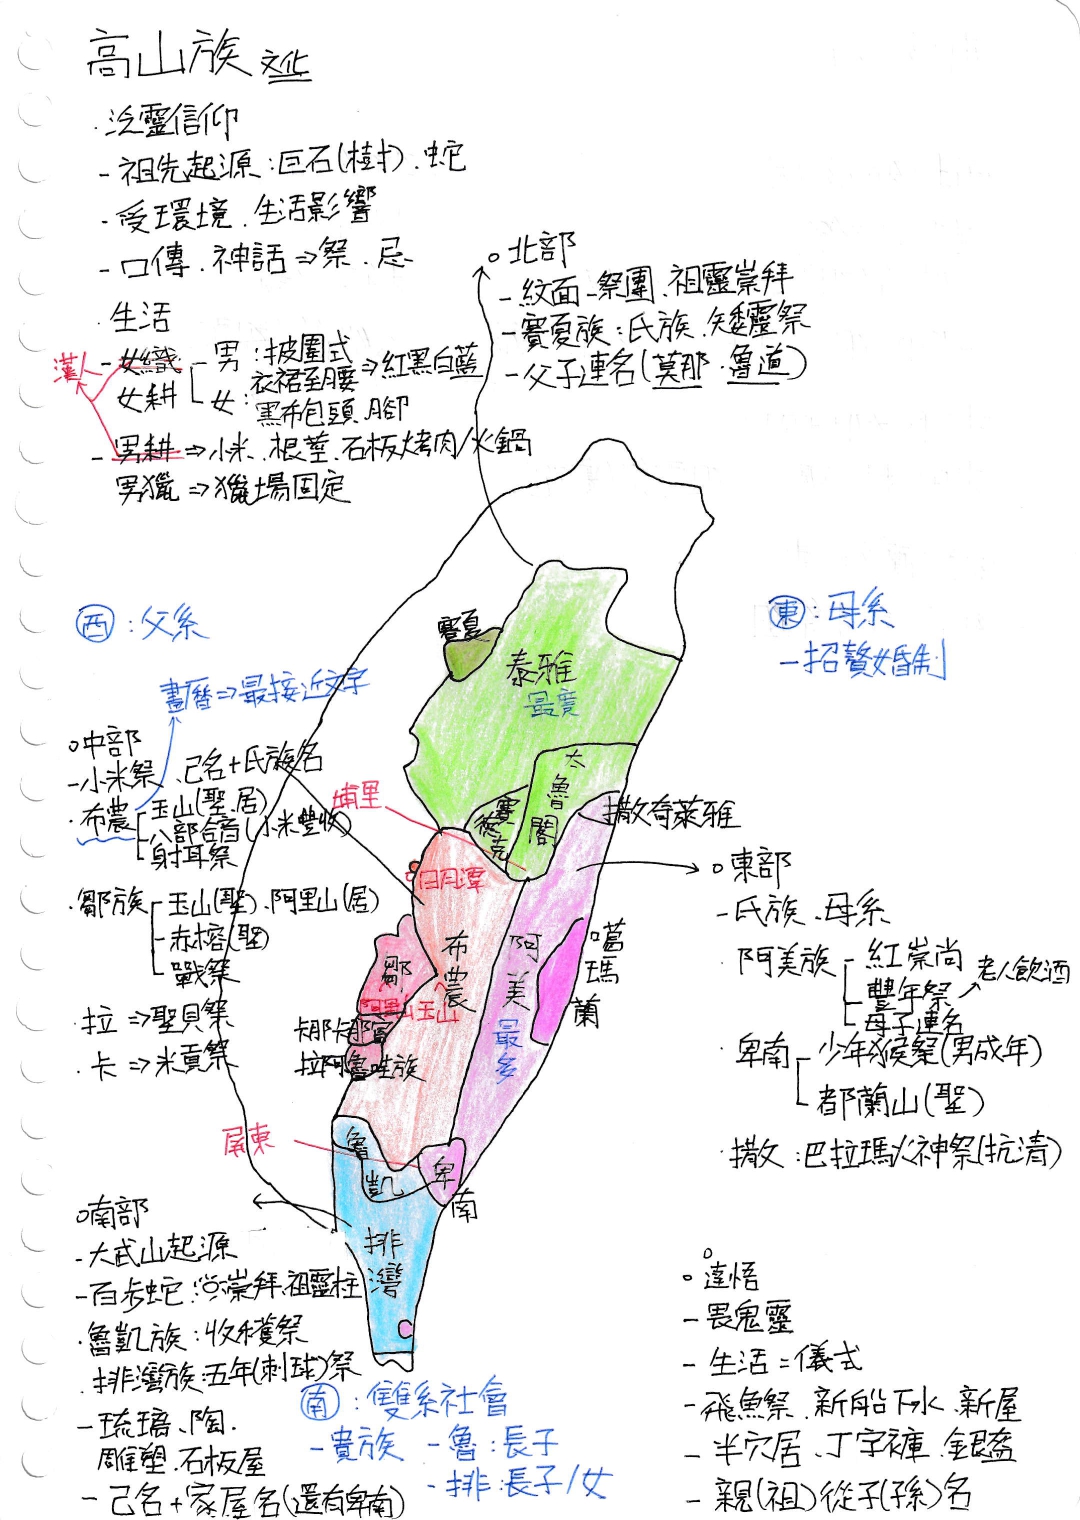 高山族文化
·泛靈信仰
-祖先起源:巨石(樹)、蛇
-受環境、生活影響
-口傳、神話⇒祭、忌
·生活
漢人
-女織
女耕
男:披圍式
衣裙至腰⇒紅黑白藍
女:黑布包頭、腳
-男耕⇒小米、根莖、石板烤肉/火鍋
男獵⇒獵場固定
○北部
-紋面-祭團、祖靈崇拜
-賽夏族:氏族、矮靈祭
-父子連名(莫那·魯道)
西:父系
畫曆⇒最接近文字
東:母系
-招贅婚制
○中部
-小米祭、己名+氏族名
·布農
玉山(聖、居)
八部合音(小米豐收)
射耳祭
·鄒族
玉山(聖)、阿里山(居)
赤榕(聖)
戰祭
·拉⇒聖貝祭
·卡⇒米貢祭
賽夏
泰雅
最廣
太魯閣
賽德克
埔里
撒奇萊雅
日月潭
布農
阿美
最多
噶瑪蘭
鄒
阿里山
玉山
卡那卡那富
拉阿魯哇族
屏東
魯凱
卑南
排灣
○東部
-氏族、母系
·阿美族
紅崇尚
豐年祭
老人飲酒
母子連名
·卑南
少年猴祭(男成年)
都蘭山(聖)
·撒:巴拉瑪火神祭(抗清)
○南部
-大武山起源
-百步蛇:崇拜、祖靈柱
·魯凱族:收穫祭
·排灣族:五年(刺球)祭
-琉璃、陶、
雕塑、石板屋
-己名+家屋名(還有卑南)
南:雙系社會
-貴族
-魯:長子
-排:長子/女
○達悟
-畏鬼靈
-生活=儀式
-飛魚祭、新船下水、新屋
-半穴居、丁字褲、銀盔
-親(祖)從子(孫)名